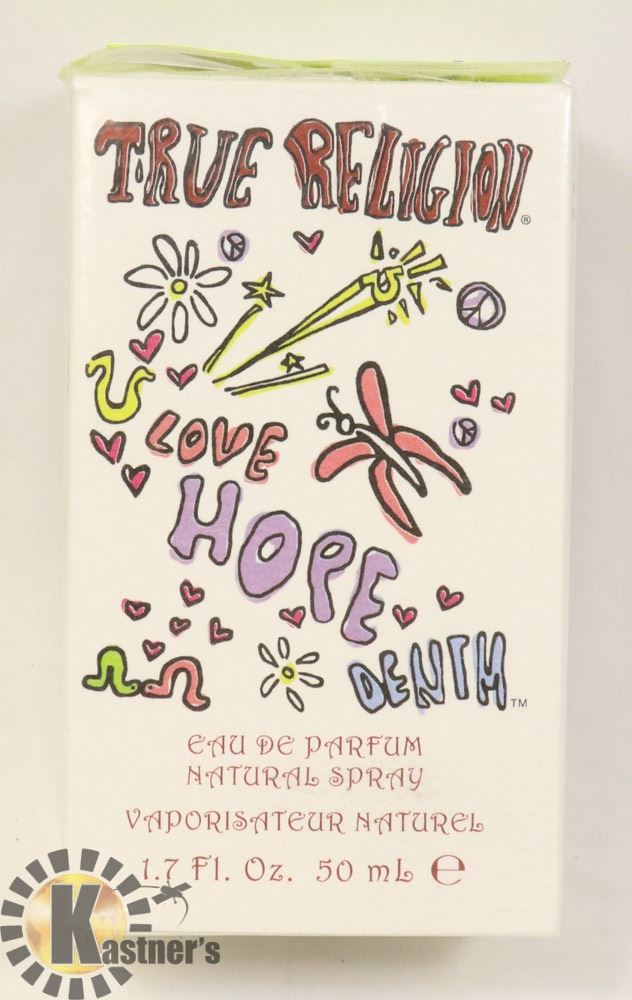 TRUE RELIGION®
LOVE
HOPE
DENIM™
EAU DE PARFUM
NATURAL SPRAY
VAPORISATEUR NATUREL
1.7 Fl. Oz. 50 mL ℮
Kastner's